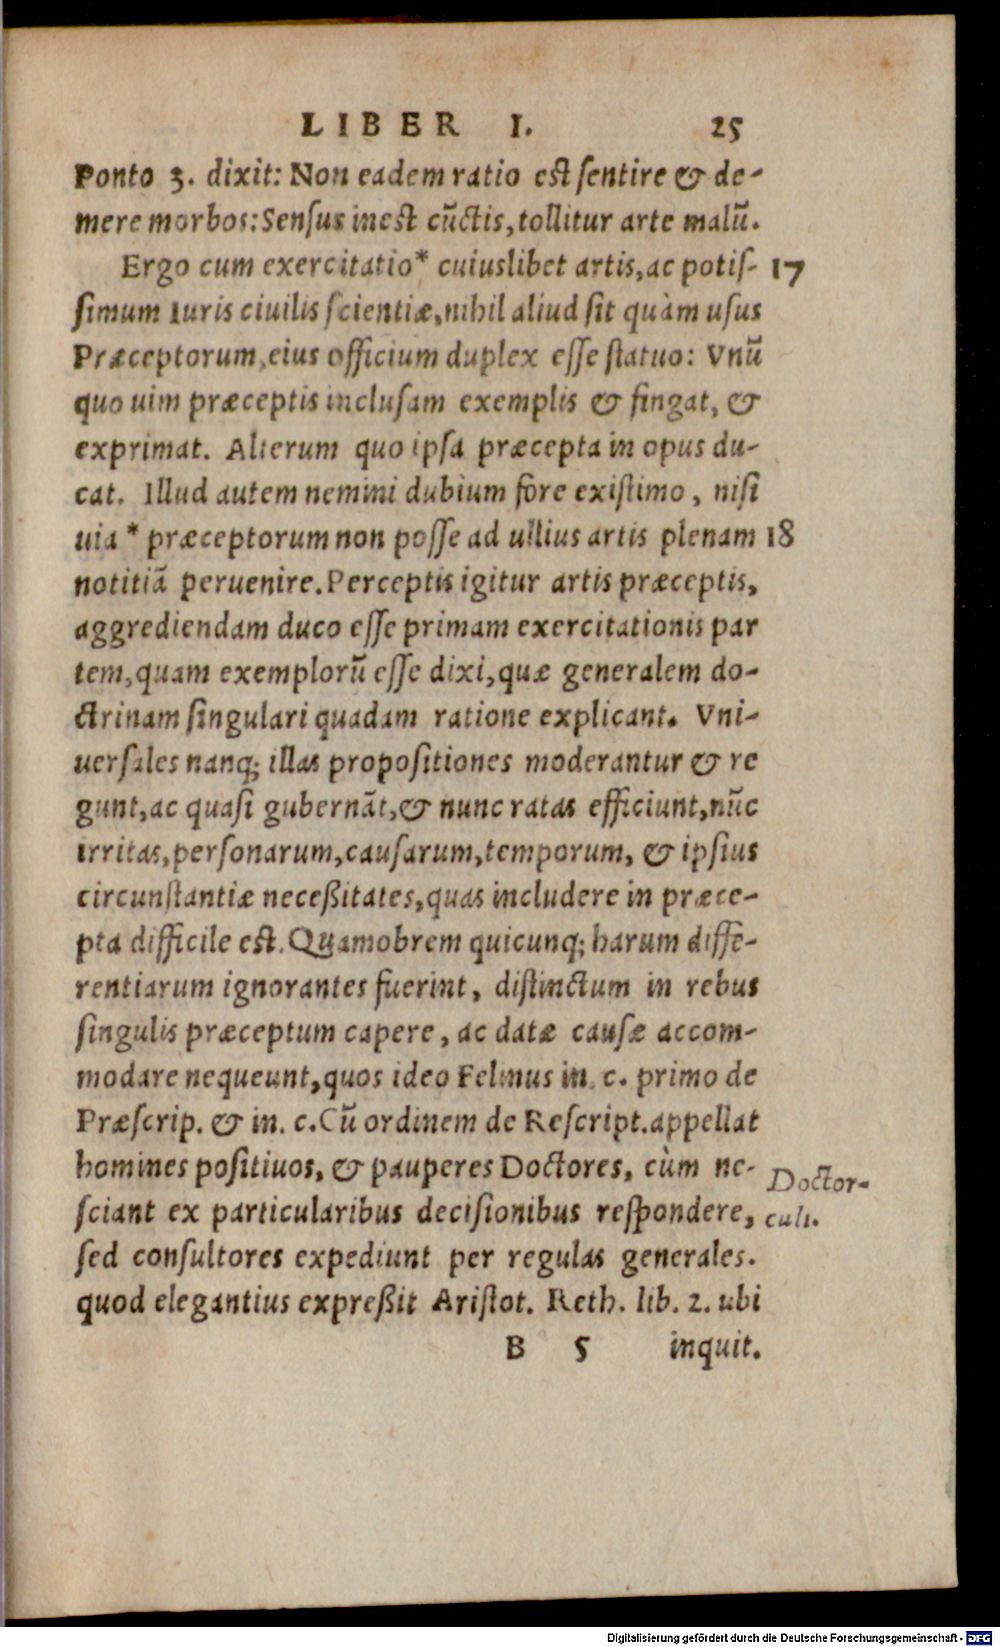 LIBER I. 25
Ponto 3. dixit: Non eadem ratio est sentire & de-
mere morbos: Sensus inest cūctis, tollitur arte malū.
Ergo cum exercitatio* cuiuslibet artis, ac potis- 17
simum Iuris ciuilis scientiæ, nihil aliud sit quàm usus
Præceptorum, eius officium duplex esse statuo: Vnū
quo uim præceptis inclusam exemplis & fingat, &
exprimat. Alterum quo ipsa præcepta in opus du-
cat. Illud autem nemini dubium fore existimo, nisi
uia * præceptorum non posse ad ullius artis plenam 18
notitiā peruenire. Perceptis igitur artis præceptis,
aggrediendam duco esse primam exercitationis par
tem, quam exemplorū esse dixi, quæ generalem do-
ctrinam singulari quadam ratione explicant. Vni-
uersales nanq; illas propositiones moderantur & re
gunt, ac quasi gubernāt, & nunc ratas efficiunt, nūc
irritas, personarum, causarum, temporum, & ipsius
circunstantiæ neceßitates, quas includere in præce-
pta difficile est. Quamobrem quicunq; harum diffe-
rentiarum ignorantes fuerint, distinctum in rebus
singulis præceptum capere, ac datæ causæ accom-
modare nequeunt, quos ideo Felinus in c. primo de
Præscrip. & in. c. Cū ordinem de Rescript. appellat
homines positiuos, & pauperes Doctores, cùm ne-
sciant ex particularibus decisionibus respondere,
sed consultores expediunt per regulas generales.
quod elegantius expreßit Aristot. Reth. lib. 2. ubi
B 5 inquit.
Doctor-
culi.
Digitalisierung gefördert durch die Deutsche Forschungsgemeinschaft - DFG